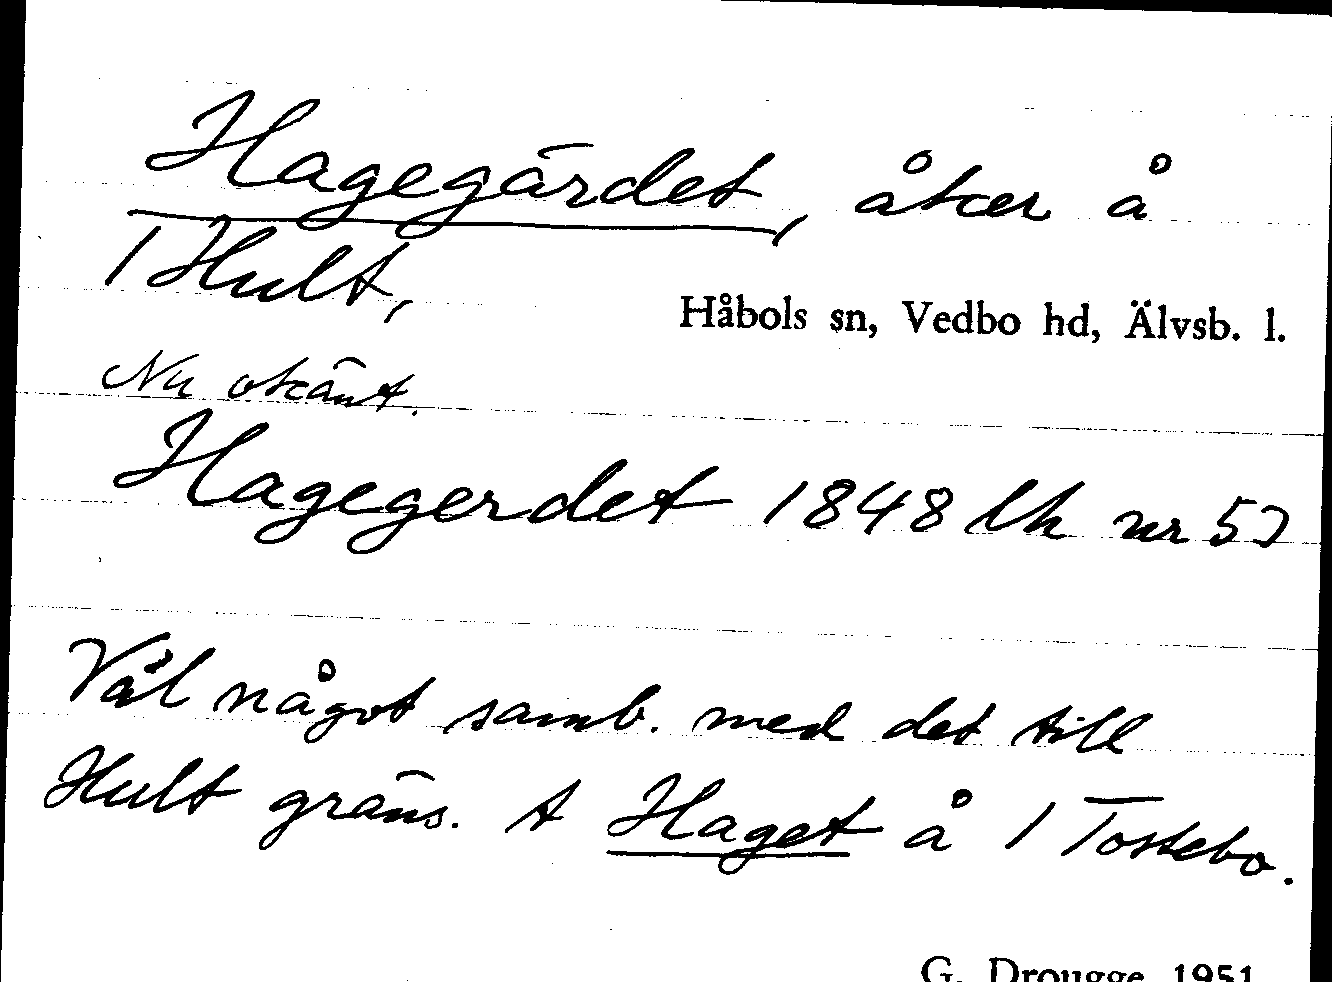 Hagegärdet, åker å
1 Hult,
Håbols sn, Vedbo hd, Älvsb. l.
Nu okänt.
Hagegerdet 1848 lh nr 57
Väl något samb. med det till
Hult gräns. t Haget å 1 Tostebo.
G. Drougge 1951